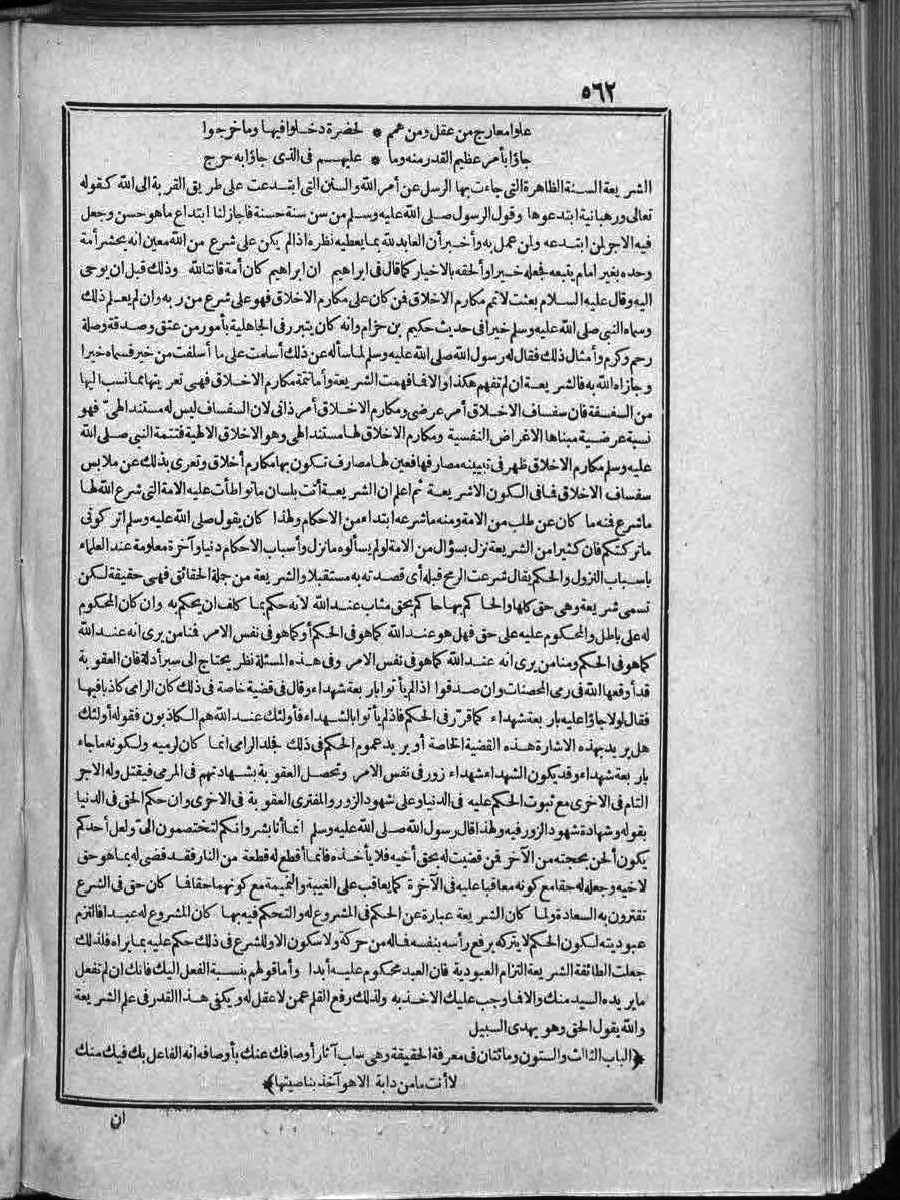 ٥٦٢
علوا معارج من عقل ومن همم * لحضرة دخلوا فيها وما خرجوا
جاؤا بأمر عظيم القدر منه وما * عليهم فى الذى جاؤا به حرج
الشريعة السنة الظاهرة التى جاءت بها الرسل عن أمر الله والسنن التى ابتدعت على طريق القربة الى الله كقوله
تعالى ورهبانية ابتدعوها وقول الرسول صلى الله عليه وسلم من سن سنة حسنة فاجاز لنا ابتداع ماهو حسن وجعل
فيه الاجر لمن ابتدعه ولمن عمل به وأخبر أن العابد لله بما يعطيه نظره اذا لم يكن على شرع من الله معين انه يحشر أمة
وحده بغير امام يتبعه فجعله خيرا وألحقه بالاخيار كما قال فى ابراهيم ان ابراهيم كان أمة قانتا لله وذلك قبل ان يوحى
اليه وقال عليه السلام بعثت لاتمم مكارم الاخلاق فمن كان على مكارم الاخلاق فهو على شرع من ربه وان لم يعلم ذلك
وسماه النبى صلى الله عليه وسلم خيرا فى حديث حكيم بن حزام وانه كان يتبرر فى الجاهلية بأمور من عتق وصدقة وصلة
رحم وكرم وأمثال ذلك فقال له رسول الله صلى الله عليه وسلم لما سأله عن ذلك أسلمت على ما أسلفت من خير فسماه خيرا
وجازاه الله به فالشريعة ان لم تفهم هكذا والا فما فهمت الشريعة وأما تتمة مكارم الاخلاق فهى تعريتها مما نسب اليها
من السفسفة فان سفساف الاخلاق أمر عرضى ومكارم الاخلاق أمر ذاتى لان السفساف ليس له مستند الهىّ فهو
نسبة عرضية مبناها الاغراض النفسية ومكارم الاخلاق لها مستند الهى وهو الاخلاق الالهية فتتمة النبى صلى الله
عليه وسلم مكارم الاخلاق ظهر فى تبيينه مصارفها فعين لها مصارف تكون بها مكارم أخلاق وتعرى بذلك عن ملابس
سفساف الاخلاق فما فى الكون الا شريعة ثم اعلم ان الشريعة أتت بلسان ما تواطأت عليه الامة التى شرع الله لها
ما شرع فمنه ما كان عن طلب من الامة ومنه ما شرعه ابتداء من الاحكام ولهذا كان يقول صلى الله عليه وسلم اتركونى
ما تركتكم فان كثيرا من الشريعة نزل بسؤال من الامة لولم يسألوه ما نزل وأسباب الاحكام دنيا وآخرة معلومة عند العلماء
باسباب النزول والحكم يقال شرعت الرمح قبله أى قصدته به مستقبلا والشريعة من جملة الحقائق فهى حقيقة لكن
تسمى شريعة وهى حق كلها والحاكم بها حاكم بحق مثاب عند الله لانه حكم بما كلف ان يحكم به وان كان المحكوم
له على باطل والمحكوم عليه على حق فهل هو عند الله كما هو فى الحكم أو كما هو فى نفس الامر فمنا من يرى انه عند الله
كما هو فى الحكم ومنا من يرى انه عند الله كما هو فى نفس الامر وفى هذه المسئلة نظر يحتاج الى سبر أدلة فان العقوبة
قد أوقعها الله فى رمى المحصنات وان صدقوا اذا لم يأتوا باربعة شهداء وقال فى قضية خاصة فى ذلك كان الرامى كاذبا فيها
فقال لولا جاؤا عليه باربعة شهداء كما قرّر فى الحكم فاذ لم يأتوا بالشهداء فأولئك عند الله هم الكاذبون فقوله أولئك
هل يريد بهذه الاشارة هذه القضية الخاصة أو يريد عموم الحكم فى ذلك فجلد الرامى انما كان لرميه ولكونه ما جاء
باربعة شهداء وقد يكون الشهداء شهداء زور فى نفس الامر وتحصل العقوبة بشهادتهم فى المرمى فيقتل وله الاجر
التام فى الاخرى مع ثبوت الحكم عليه فى الدنيا وعلى شهود الزور والمفترى العقوبة فى الاخرى وان حكم الحق فى الدنيا
بقوله وشهادة شهود الزور فيه ولهذا قال رسول الله صلى الله عليه وسلم انما أنا بشر وانكم لتختصمون الىّ ولعل أحدكم
يكون ألحن بحجته من الآخر فمن قضيت له بحق أخيه فلا يأخذه فانما أقطع له قطعة من النار فقد قضى له بما هو حق
لاخيه وجعله له حقا مع كونه معاقبا عليه فى الآخرة كما يعاقب على الغيبة والنميمة مع كونهما حقا فما كان حق فى الشرع
تقترن به السعادة ولما كان الشريعة عبارة عن الحكم فى المشروع له والتحكم فيه بها كان المشروع له عبدا فالتزم
عبوديته لكون الحكم لا يتركه يرفع رأسه بنفسه فما له من حركة ولا سكون الا وللشرع فى ذلك حكم عليه بما يراه فلذلك
جعلت الطائفة الشريعة التزام العبودية فان العبد محكوم عليه أبدا وأما قولهم بنسبة الفعل اليك فانك ان لم تفعل
ما يريده السيد منك والا فما وجب عليك الاخذ به ولذلك رفع القلم عمن لا عقل له ويكفى هذا القدر فى علم الشريعة
والله يقول الحق وهو يهدى السبيل
﴿الباب الثالث والستون ومائتان فى معرفة الحقيقة وهى سلب آثار أوصافك عنك بأوصافه انه الفاعل بك فيك منك
لا أنت ما من دابة الا هو آخذ بناصيتها﴾
ان